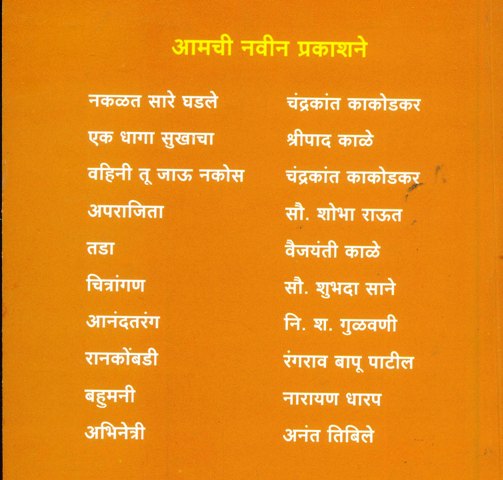 आमची नवीन प्रकाशने
नकळत सारे घडले चंद्रकांत काकोडकर
एक धागा सुखाचा श्रीपाद काळे
वहिनी तू जाऊ नकोस चंद्रकांत काकोडकर
अपराजिता सौ. शोभा राऊत
तडा वैजयंती काळे
चित्रांगण सौ. शुभदा साने
आनंदतरंग नि. श. गुळवणी
रानकोंबडी रंगराव बापू पाटील
बहुमनी नारायण धारप
अभिनेत्री अनंत तिबिले